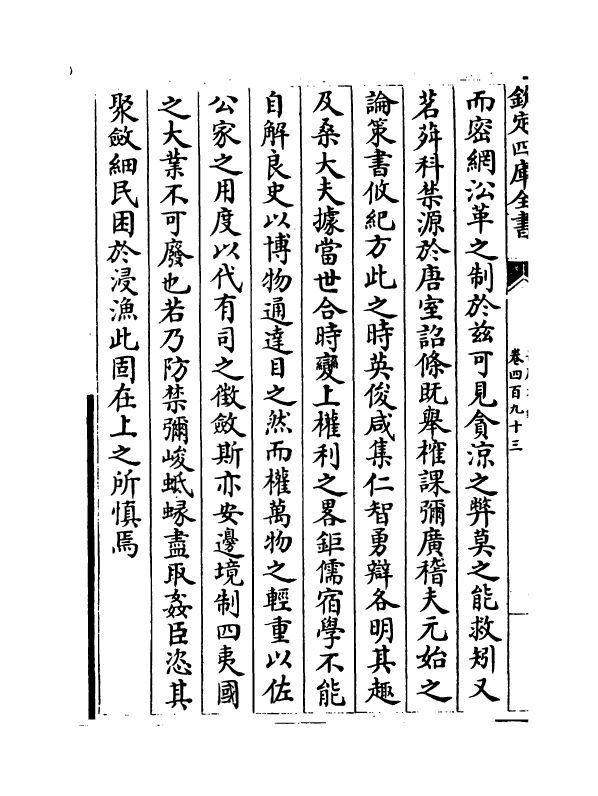 欽定四庫全書
卷四百九十三
而密網㳂革之制於兹可見貪涼之弊莫之能救矧又
茗荈科禁源於唐室詔條既舉榷課彌廣稽夫元始之
論策書攸紀方此之時英俊咸集仁智勇辯各明其趣
及桑大夫據當世合時變上權利之畧鉅儒宿學不能
自解良史以博物通達目之然而權萬物之輕重以佐
公家之用度以代有司之徵斂斯亦安邊境制四夷國
之大業不可廢也若乃防禁彌峻蚳蝝盡取姦臣恣其
聚斂細民困於浸漁此固在上之所慎焉